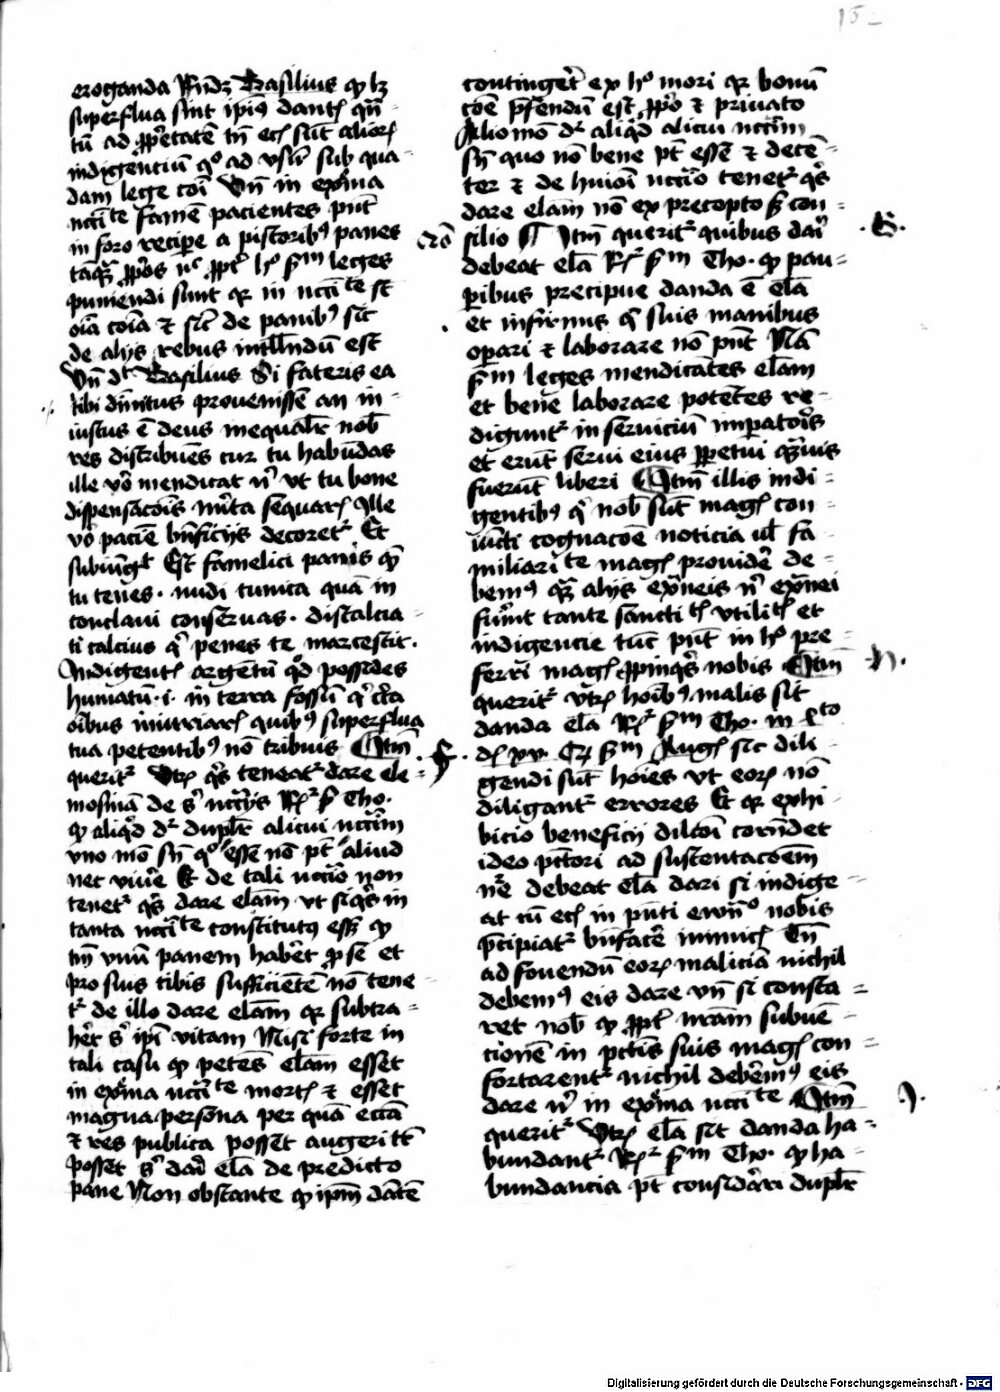 15
eroganda Rn̄dꝫ Basilius ꝙ lꝫ
superflua sint ip̄iꝰ dantꝭ qn̄
tū ad ꝓp̄etatē tn̄ ecꝭ sūt alioꝝ
indigenciū qͦ ad vsū sub qua-
dam lege coī Vn̄ in ext̄ma
ncc̄i te famē pacientes pn̄t
in foro recipe a pistoribꝰ panes
puniendi sunt qꝛ in ncc̄i te st̄
oīa coīa ⁊ sic̄ de panibꝰ sic̄
de alijs rebus intll̄ndū est
Vn̄ dt Basilius Si fateris ea
tibi diuītus prouenisse an in-
iustus ē deus inequalr̄ nob̄
res distribuens cur tu habūdas
ille vͦo mendicat nͥ vt tu bone
dispensac̄ois mr̄ta sequarꝭ Ille
vͦo paciē bn̄ficijs decoretꝛ Et
subiūgt Est famelici panis qm̄
tu tenes. nudi tunica quā in
conclaui conseruas. discalcia-
ti calcius qͥ penes te marcescit.
Indigentꝭ argētū qd̄ possides
humatū. i. in terra fossū qͥ c̄ta
oībus iniuriarꝭ quibꝰ superflua
tua petentibꝰ nō tribuis Itm̄
queritꝛ Vtꝝ qͥs teneatꝛ dare ele-
mosinā de sͥ ncc̄ijs Rꝛ sͥ Tho.
ꝙ aliqͥd dꝛ duplr̄ alicui ncc̄iu
vno mō sn̄ qͦ esse nō pt̄ aliud
nec viuē Et de tali ncc̄io non
tenetꝛ qͥs dare elam̄ vt siqͥs in
tanta ncc̄i te constitutꝰ ess; ꝙ
tm̄ vnū panem habēt ꝓ se et
pro suis tibis sufficiētē nō tene-
tꝛ de illo dare elam̄ qꝛ subtra-
hēt sͥ ip̄i vitam Nisi forte in
tali casu ꝙ petens elam̄ esset
in ext̄ma ncc̄i te mortꝭ ⁊ esset
magna persona per quā ecc̄a
⁊ res publica posset augeri tc̄
posset sͥ dari ela de predicto
pane Non obstante ꝙ ip̄m dātē
contingēt ex hͦ mori qꝛ bonū
cōe p̄ferendū est ꝓpͦo ⁊ priuato
Aliomō dꝛ aliqͥd alicui ncc̄iu
sn̄ quo nō bene pt̄ esse ⁊ decē-
ter ⁊ de huiōi ncc̄io tenetꝛ qͥs
dare elam̄ nō ex precepto sꝫ con-
silio Itm̄ queritꝛ quibus dari
debeat ela Rꝛ sm̄ Tho. ꝙ pau-
peribus precipue danda ē ela
et infirmis qͥ suis manibus
operari ⁊ laborare nō pn̄t Nā
sm̄ leges mendicātes elam̄
et bene laborare potētes re-
digūtꝛ in seruiciū impatoris
et erūt serui eius ꝑpetui qͣmuis
fuerūt liberi Itm̄ illis indi-
gentibꝰ qͥ nob̄ sūt magꝭ con-
iūcti cognacōe noticia ul̄ fa-
miliari te magꝭ prouidē de-
bemꝰ qͣ alijs ext̄neis nͥ ext̄nei
fuīnt tante sancti tꝭ vtilitꝭ et
indigencie tūc pn̄t in hͦ pre-
ferri magꝭ ꝓpinqͥs nobis Itm̄
queritꝛ vtꝝ hoībꝰ malis sit
danda ela Rꝛ sm̄ Tho. in 4to
dꝭ xv. Qꝛ sm̄ Augꝭ sic dili-
gendi sūt hoīes vt eoꝝ nō
diligantꝛ errores Et qꝛ exhi
bicio beneficij dilcōi corn̄det
ideo pctōri ad sustentacōem
nr̄e debeat ela dari si indige-
at cū ecꝭ in pn̄ti ewn̄o nobis
p̄cipiatꝛ bn̄facē inimicꝭ Tn̄
ad fouendū eoꝝ malicia nichil
debemꝰ eis dare vn̄ si consta-
ret nob̄ ꝙ ꝓpt̄ nr̄am subuē-
cionē in pctīs suis magꝭ con-
fortarentꝛ nichil deberemꝰ eis
dare nͥ in ext̄ma ncc̄i te Itm̄
queritꝛ Vtꝝ ela sit danda ha-
bundantꝛ Rꝛ sm̄ Tho. ꝙ ha-
bundancia pt̄ considerari duplr̄
Digitalisierung gefördert durch die Deutsche Forschungsgemeinschaft - DFG